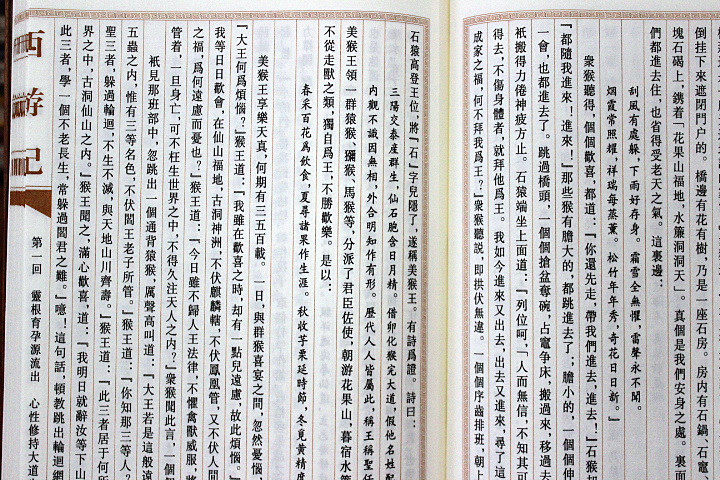 倒挂下來遮閉門户的。橋邊有花有樹，乃是一座石房。房内有石鍋、石竈、
塊石碣上，鐫着『花果山福地，水簾洞洞天』。真個是我們安身之處。裏面
們都進去住，也省得受老天之氣。這裏邊：
刮風有處躲，下雨好存身。霜雪全無懼，雷聲永不聞。
烟霞常照耀，祥瑞每蒸薰。松竹年年秀，奇花日日新。』
衆猴聽得，個個歡喜，都道：『你還先走，帶我們進去，進去！』石猴却
『都隨我進來！進來！』那些猴有膽大的，都跳進去了；膽小的，一個個伸
一會，也都進去了。跳過橋頭，一個個搶盆奪碗，占竈争床，搬過來，移過去
衹搬得力倦神疲方止。石猿端坐上面道：『列位呵，「人而無信，不知其可
得去，不傷身體者，就拜他爲王。我如今進來又出去，出去又進來，尋了這
成家之福，何不拜我爲王？』衆猴聽説，即拱伏無違。一個個序齒排班，朝上
石猿高登王位，將「石」字兒隱了，遂稱美猴王。有詩爲證。詩曰：
三陽交泰産群生，仙石胞含日月精。借卵化猴完大道，假他名姓配
内觀不識因無相，外合明知作有形。歷代人人皆屬此，稱王稱聖任
美猴王領一群猿猴、獼猴、馬猴等，分派了君臣佐使，朝游花果山，暮宿水
不從走獸之類，獨自爲王，不勝歡樂。是以：
春采百花爲飲食，夏尋諸果作生涯。秋收芋栗延時節，冬覓黄精度
美猴王享樂天真，何期有三五百載。一日，與群猴喜宴之間，忽然憂惱，
『大王何爲煩惱？』猴王道：『我雖在歡喜之時，却有一點兒遠慮，故此煩惱。』
我等日日歡會，在仙山福地，古洞神洲，不伏麒麟轄，不伏鳳凰管，又不伏人間
之福，爲何遠慮而憂也？』猴王道：『今日雖不歸人王法律，不懼禽獸威服，將
管着，一旦身亡，可不枉生世界之中，不得久注天人之内？』衆猴聞此言，一個
衹見那班部中，忽跳出一個通背猿猴，厲聲高叫道：『大王若是這般遠
五蟲之内，惟有三等名色，不伏閻王老子所管。』猴王道：『你知那三等人？』
聖三者，躲過輪迴，不生不滅，與天地山川齊壽。』猴王道：『此三者居于何所
界之中，古洞仙山之内。』猴王聞之，滿心歡喜，道：『我明日就辭汝等下山
此三者，學一個不老長生，常躲過閻君之難。』噫！這句話，頓教跳出輪迴網
西游記
第一回　靈根育孕源流出　心性修持大道